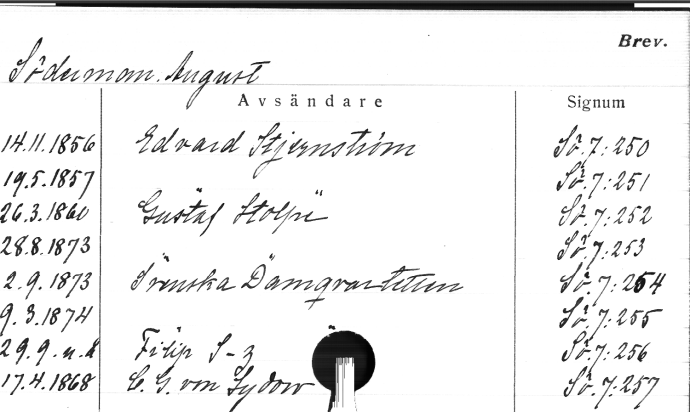 Brev.
Söderman, August
Avsändare Signum
14.11.1856 Edvard Stjernström Sö.7:250
19.5.1857 " Sö.7:251
26.3.1860 Gustaf Stolpe Sö.7:252
28.8.1873 " Sö.7:253
2.9.1873 Svenska Damqvartetten Sö.7:254
9.3.1874 " Sö.7:255
29.9. Filip S-z Sö.7:256
17.4.1868 C. G. von Sydow Sö.7:257